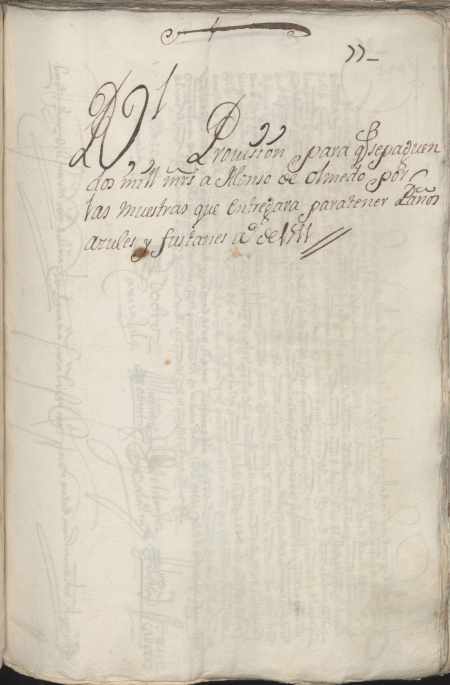 77_
Rl Prouission para q se paguen
dos mill mrs a Alonso de Olmedo por
las muestras que entregara para tener Paños
azules y fustanes aº de 1511